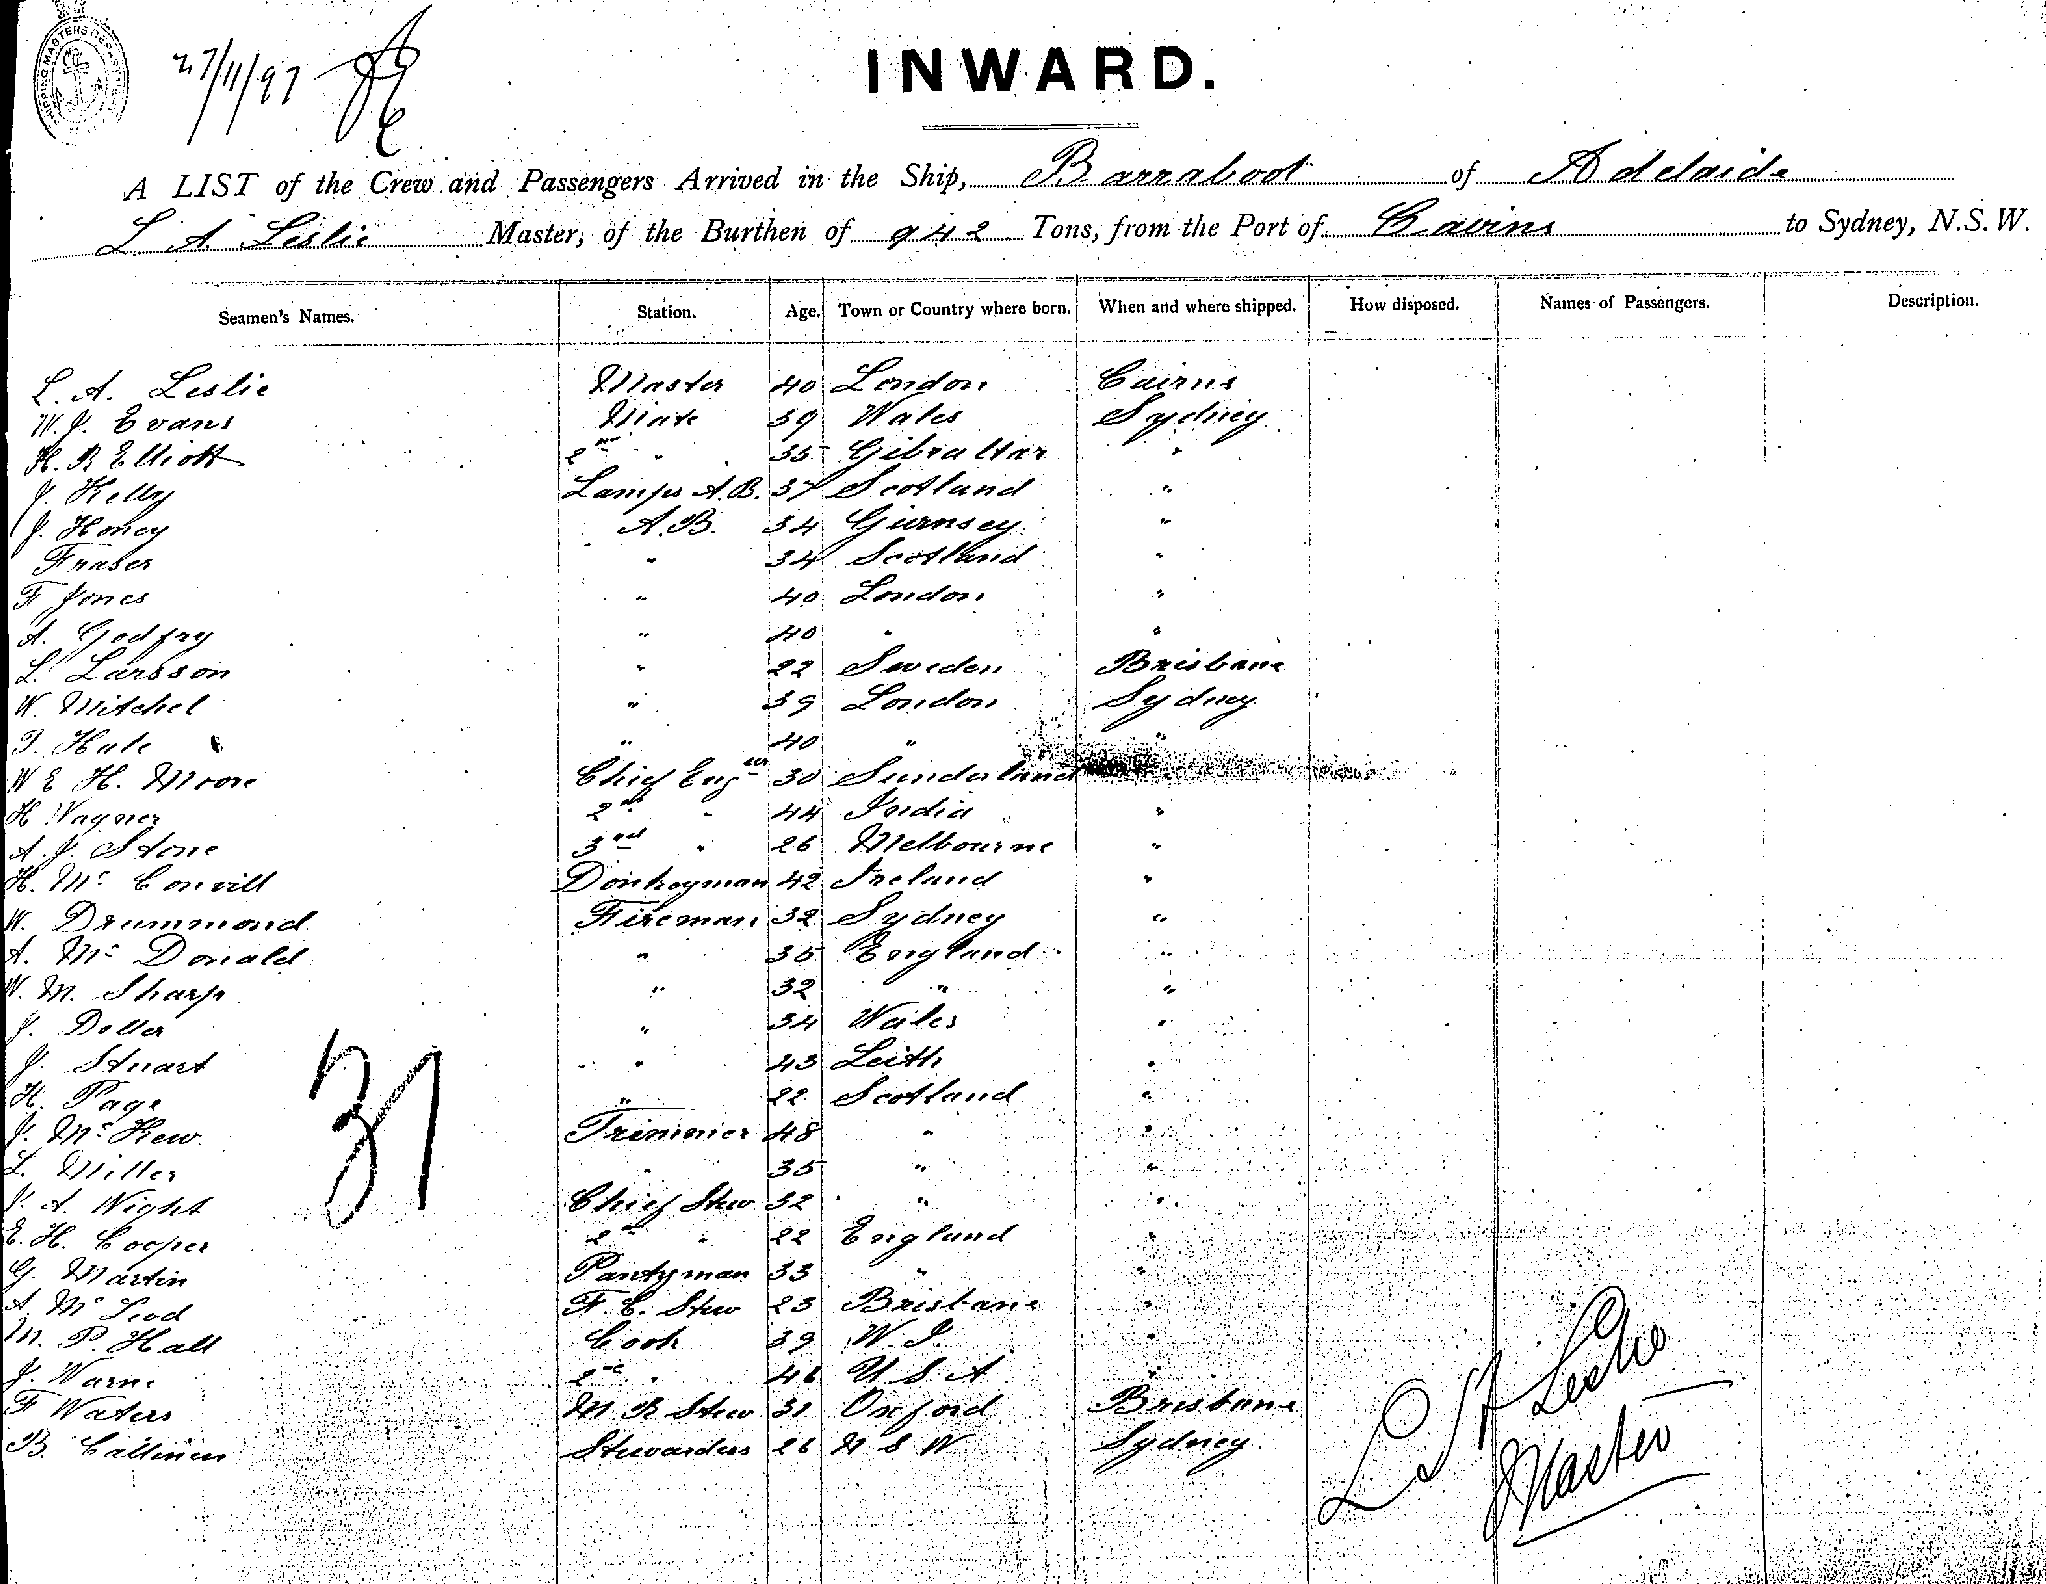 27/11/97
INWARD.
A LIST of the Crew and Passengers Arrived in the Ship, Barrabool of Adelaide
L A Leslie Master, of the Burthen of 942 Tons, from the Port of Cairns to Sydney, N.S.W.
Seamen's Names. Station. Age. Town or Country where born. When and where shipped. How disposed. Names of Passengers. Description.
L. A. Leslie Master 40 London Cairns
W. J. Evans Mate 39 Wales Sydney
H. R Elliott 2nd " 35 Gibraltar "
J. Kelly Lamps A.B. 37 Scotland "
J. Honey A.B. 34 Guernsey "
Fraser " 34 Scotland "
F Jones " 40 London "
A. Godfry " 40 " "
L. Larsson " 22 Sweden Brisbane
W. Mitchel " 39 London Sydney
T. Hale " 40 " "
W E H. Moore Chief Engeer 30 Sunderland
H Wagner 2nd " 44 India "
A. J. Stone 3rd " 26 Melbourne "
H. Mc Convill Donkeyman 42 Ireland "
W. Drummond Fireman 32 Sydney "
A. Mc Donald " 35 England "
W. M. Sharp " 32 " "
J. Doller " 34 Wales "
J. Stuart " 43 Leith "
H. Page " 22 Scotland "
J. Mc Kew Trimmer 48 " "
L. Miller " 35 " "
J. A. Night Chief Stew 32 " "
E. H. Cooper 2nd " 22 England "
G. Martin Pantryman 33 " "
A. Mc Leod F. C. Stew 23 Brisbane "
M. P. Hall Cook 39 W. I. "
J. Warne 2nd " 46 U S A "
F Waters M R Stew 31 Oxford Brisbane
B. Callinen Stewardess 26 N S W Sydney
31
L A Leslie
Master